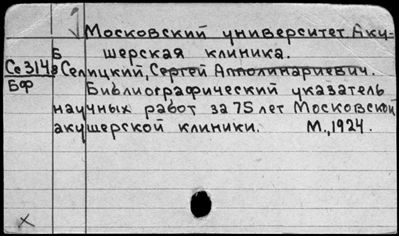 Московский университет. Аку-
шерская клиника.
Б
Се314
в
БФ
Селицкий, Сергей Апполинариевич.
Библиографический указатель
научных работ за 75 лет Московской
акушерской клиники. М., 1924.
х